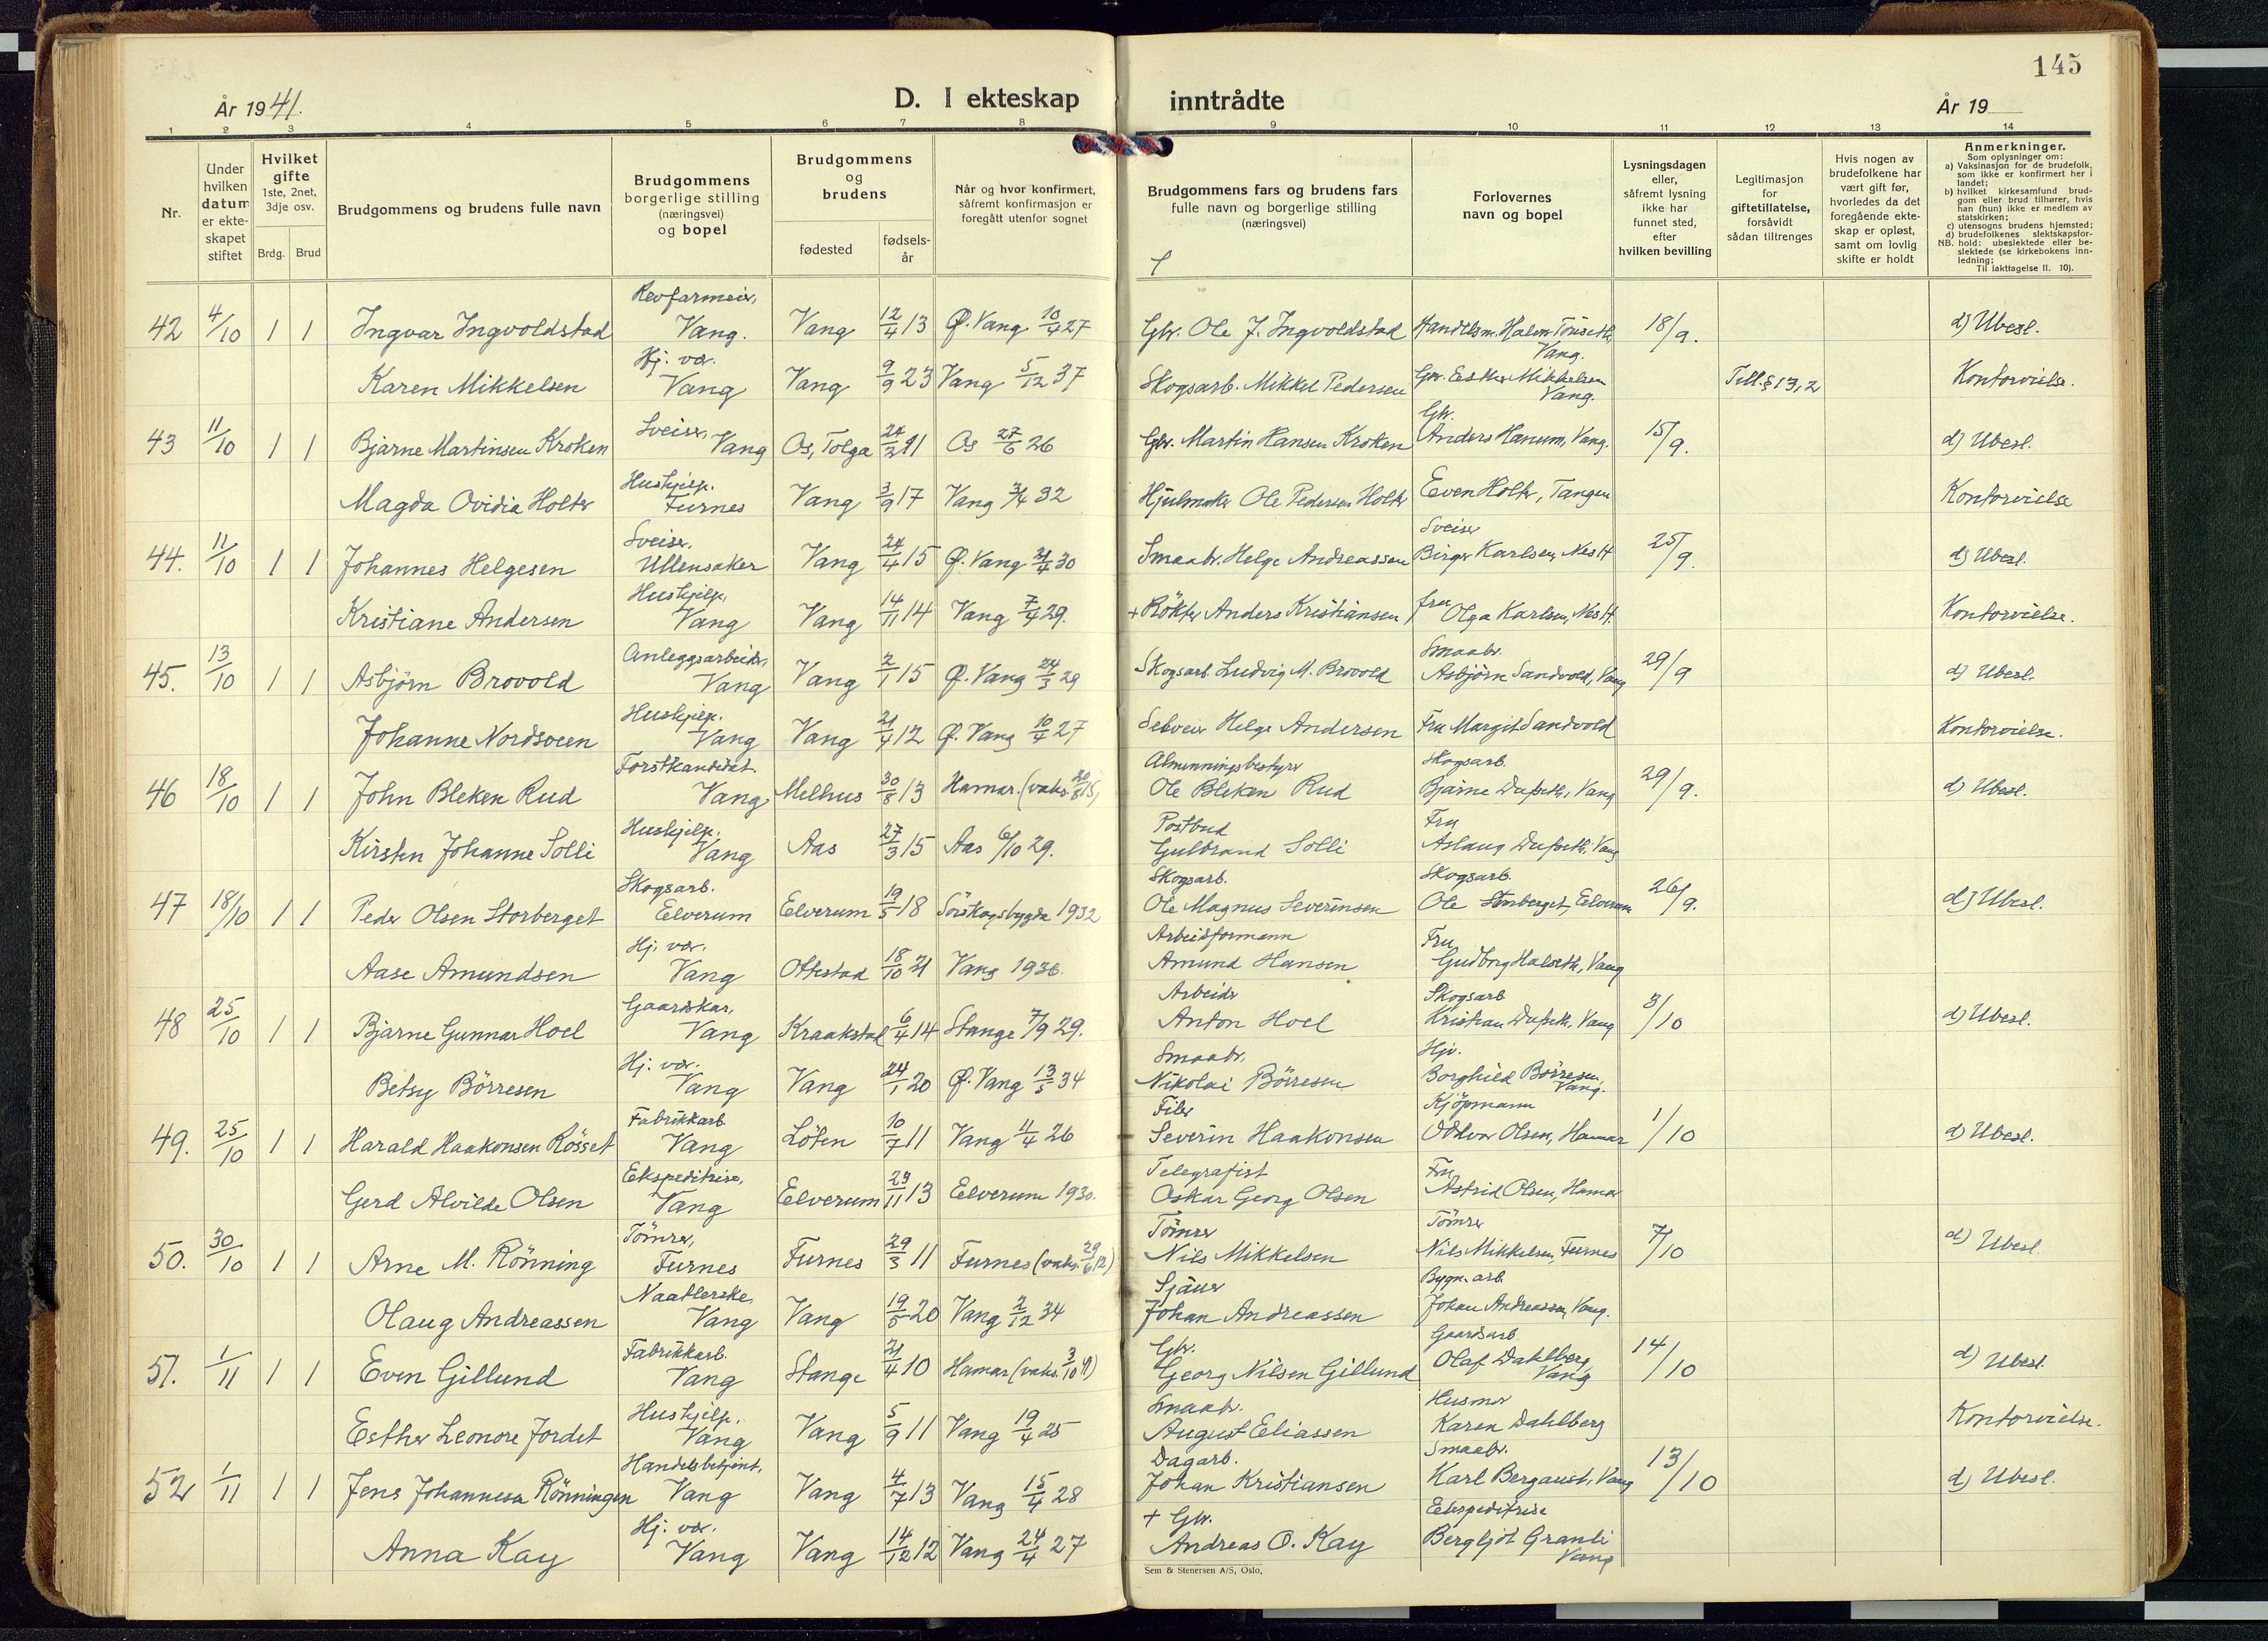 145
År 1941.
D. I ekteskap
inntrådte
År 19
1 2 3 4 5 6 7 8 9 10 11 12 13 14
Nr.
Under
hvilken
datum
er ekte-
skapet
stiftet
Hvilket
gifte
1ste, 2net,
3dje osv.
Brdg. Brud
Brudgommens og brudens fulle navn
Brudgommens
borgerlige stilling
(næringsvei)
og bopel
Brudgommens
og
brudens
fødested
fødsels-
år
Når og hvor konfirmert,
såfremt konfirmasjon er
foregått utenfor sognet
Brudgommens fars og brudens fars
fulle navn og borgerlige stilling
(næringsvei)
Forlovernes
navn og bopel
Lysningsdagen
eller,
såfremt lysning
ikke har
funnet sted,
efter
hvilken bevilling
Legitimasjon
for
giftetillatelse,
forsåvidt
sådan tiltrenges
Hvis nogen av
brudefolkene har
vært gift før,
hvorledes da det
foregående ekte-
skap er opløst,
samt om lovlig
skifte er holdt
Anmerkninger.
Som oplysninger om:
a) Vaksinasjon for de brudefolk,
som ikke er konfirmert her i
landet;
b) hvilket kirkesamfund brud-
gom eller brud tilhører, hvis
han (hun) ikke er medlem av
statskirken;
c) utensogns brudens hjemsted;
d) brudefolkenes slektskapsfor-
NB. hold: ubeslektede eller be-
slektede (se kirkebokens inn-
ledning;
Til iakttagelse II. 10).
Revfarmeier,
42 4/10 1 1 Ingvar Ingvoldstad Vang. Vang 12/4 13 Ø. Vang 10/4 27 Gbr. Ole J. Ingvoldstad Handelsm. Halvor Tönseth, Vang. 18/9. d) Ubesl.
Hj. vær.
Karen Mikkelsen Vang Vang 9/9 23 Vang 5/12 37 Skogsarb. Mikkel Pedersen Gbr. Esther Mikkelsen Vang. Till. § 13, 2 Kontorvielse.
Sveiser, Gbr.
43 11/10 1 1 Bjarne Martinsen Kroken Vang Os, Tolga 24/2 11 Os 27/6 26 Gbr. Martin Hansen Kroken Anders Hanum, Vang. 15/9. d) Ubesl.
Hushjelp.
Magda Ovidia Holter Furnes Vang 3/9 17 Vang 3/4 32 Hjulmaker Ole Pedersen Holter Even Holter, Tangen Kontorvielse
Sveiser, Sveiser
44. 11/10 1 1 Johannes Helgesen Ullensaker Vang 24/4 15 Ø. Vang 21/4 30 Smaabr. Helge Andreassen Birger Karlsen, Nes H 25/9. d) Ubesl.
Hushjelp,
Kristiane Andersen Vang Vang 14/11 14 Vang 7/4 29. + Rökter Anders Kristiansen fru Olga Karlsen, Nes H. Kontorvielse.
Anleggsarbeider, Smaabr.
45. 13/10 1 1 Asbjörn Brovold Vang Vang 2/1 15 Ø. Vang 24/3 29 Skogsarb. Ludvig M. Brovold Asbjörn Sandvold, Vang 29/9 d) Ubesl.
Hushjelp.
Johanne Nordsveen Vang Vang 21/4 12 Ø. Vang 10/4 27 Selveier Helge Andersen Fru Margit Sandvold Kontorvielse.
Forstkandidat. Almenningsbestyrer Skogsarb.
46 18/10 1 1 John Bleken Rud Vang Melhus 30/8 13 Hamar. (vaks. 20/8 15, Ole Bleken Rud Bjarne Dufseth, Vang 29/9. d) Ubesl.
Hushjelp, Postbud Fru
Kirsten Johanne Solli Vang Aas 27/3 15 Aas 6/10 29. Gulbrand Solli Aslaug Dufseth, Vang
Skogsarb. Skogsarb. Skogsarb.
47 18/10 1 1 Peder Olsen Storberget Elverum Elverum 19/5 18 Sörskogsbygda 1932 Ole Magnus Severinsen Ole Storberget, Elverum 26/9. d) Ubesl.
Hj. vær. Arbeidsformann Fru
Aase Amundsen Vang Ottestad 18/10 21 Vang 1936. Amund Hansen Gudborg Halseth, Vang
Gaardskar, Arbeider Skogsarb
48 25/10 1 1 Bjarne Gunnar Hoel Vang Kraakstad 6/4 14 Stange 7/9 29. Anton Hoel Kristian Dufseth, Vang 3/10 d) Ubesl.
Hj. vær. Smaabr. Hjv.
Betsy Börresen Vang Vang 24/1 20 Ø. Vang 13/5 34 Nikolai Börresen Borghild Börresen, Vang.
Fabrikkarb. Filer Kjöpmann
49. 25/10 1 1 Harald Haakonsen Rösset Vang Löten 10/7 11 Vang 11/4 26 Severin Haakonsen Oddvar Olsen, Hamar 1/10 d) Ubesl.
Ekspeditrise, Telegrafist Fru
Gerd Alvilde Olsen Vang Elverum 23/11 13 Elverum 1930. Oskar Georg Olsen Astrid Olsen, Hamar
Tömrer, Tömrer Tömrer
50. 30/10 1 1 Arne M. Rönning Furnes Furnes 29/3 11 Furnes (vaks. 29/6 12) Nils Mikkelsen Nils Mikkelsen, Furnes 7/10 d) Ubesl.
Naatlerske, Sjåuer Bygn. arb.
Olaug Andreassen Vang Vang 19/5 20 Vang 2/12 34 Johan Andreassen Johan Andreassen, Vang.
Fabrikkarb. Gbr. Gaardsarb.
51. 1/11 1 1 Even Gillund Vang Stange 21/4 10 Hamar (vaks. 3/10 11) Georg Nilsen Gillund Olaf Dahlberg Vang 14/10 d) Ubesl.
Hushjelp, Smaabr. Husmor
Esther Leonore Jordet Vang Vang 5/9 11 Vang 19/4 25 August Eliassen Karen Dahlberg Kontorvielse.
Handelsbetjent, Dagarb. Smaabr.
52 1/11 1 1 Jens Johannesen Rönningen Vang Vang 4/7 13 Vang 15/4 28 Johan Kristiansen Karl Bergaust, Vang 13/10 d) Ubesl.
Hj. vær. + Gbr. Ekspeditrise
Anna Kay Vang Vang 14/12 12 Vang 24/4 27 Andreas O. Kay Bergljot Granli Vang
Sem & Stenersen A/S, Oslo.